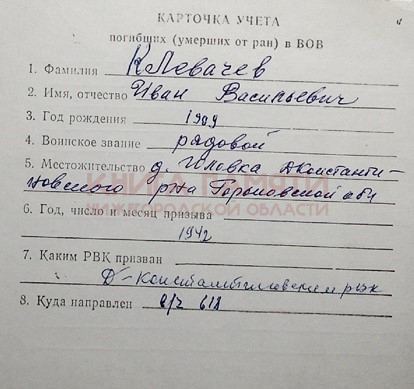 КАРТОЧКА УЧЕТА
погибших (умерших от ран) в ВОВ
1. Фамилия Клевачев
2. Имя, отчество Иван Васильевич
3. Год рождения 1909
4. Воинское звание рядовой
5. Местожительство д. Д Константи-
новского р-на Горьковской обл
КНИГА ПАМЯТИ
НИЖЕГОРОДСКОЙ ОБЛАСТИ
6. Год, число и месяц призыва
1942
7. Каким РВК призван
Д-Константиновским рвк
8. Куда направлен в/ч 618